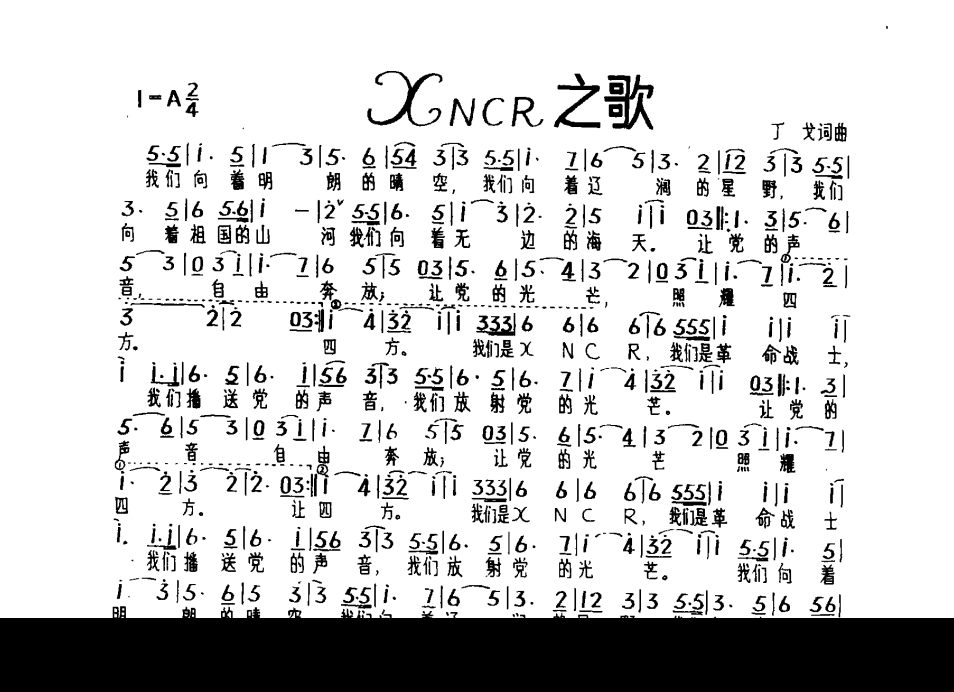 XNCR之歌
1=A 2/4
丁 戈词曲
5·5|1· 5|1 3|5· 6|54 3|3 5·5|1· 7|6 5|3· 2|12 3|3 5·5|
我们向 着明 朗的晴 空, 我们向 着辽 阔的星 野, 我们
3· 5|6 5·6|1 -|2 5·5|6· 5|1 3|2· 2|5 1|1 03|:1· 3|5· 6|
向 着祖 国的山 河 我们向 着无 边的海 天。 让党的声
5 3|0 31|1· 7|6 5|5 03|5· 6|5· 4|3 2|0 31|1· 7|1· 2|
音, 自由 奔 放; 让党的光 芒, 照耀 四
3 2|2 03:|1 4|32 1|1 333|6 6|6 6|6 555|1 1|1 1|
方。 四 方。 我们是X N C R, 我们是革 命战士,
1 1·1|6· 5|6· 1|56 3|3 5·5|6· 5|6· 7|1 4|32 1|1 03|:1· 3|
我们播 送党 的声 音, 我们放 射党 的光 芒。 让党的
5· 6|5 3|0 31|1· 7|6 5|5 03|5· 6|5· 4|3 2|0 31|1· 7|
声 音 自由 奔 放; 让党 的光 芒 照耀
1· 2|3 2|2· 03:|1 4|32 1|1 333|6 6|6 6|6 555|1 1|1 1|
四 方。 让四 方。 我们是X N C R, 我们是革 命战士
1· 1·1|6· 5|6· 1|56 3|3 5·5|6· 5|6· 7|1 4|32 1|1 5·5|1· 5|
我们播 送党 的声 音, 我们放 射党 的光 芒。 我们向 着
1· 3|5· 6|5 3|3 5·5|1· 7|6 5|3· 2|12 3|3 5·5|3· 5|6 56|
明 朗 的晴 空